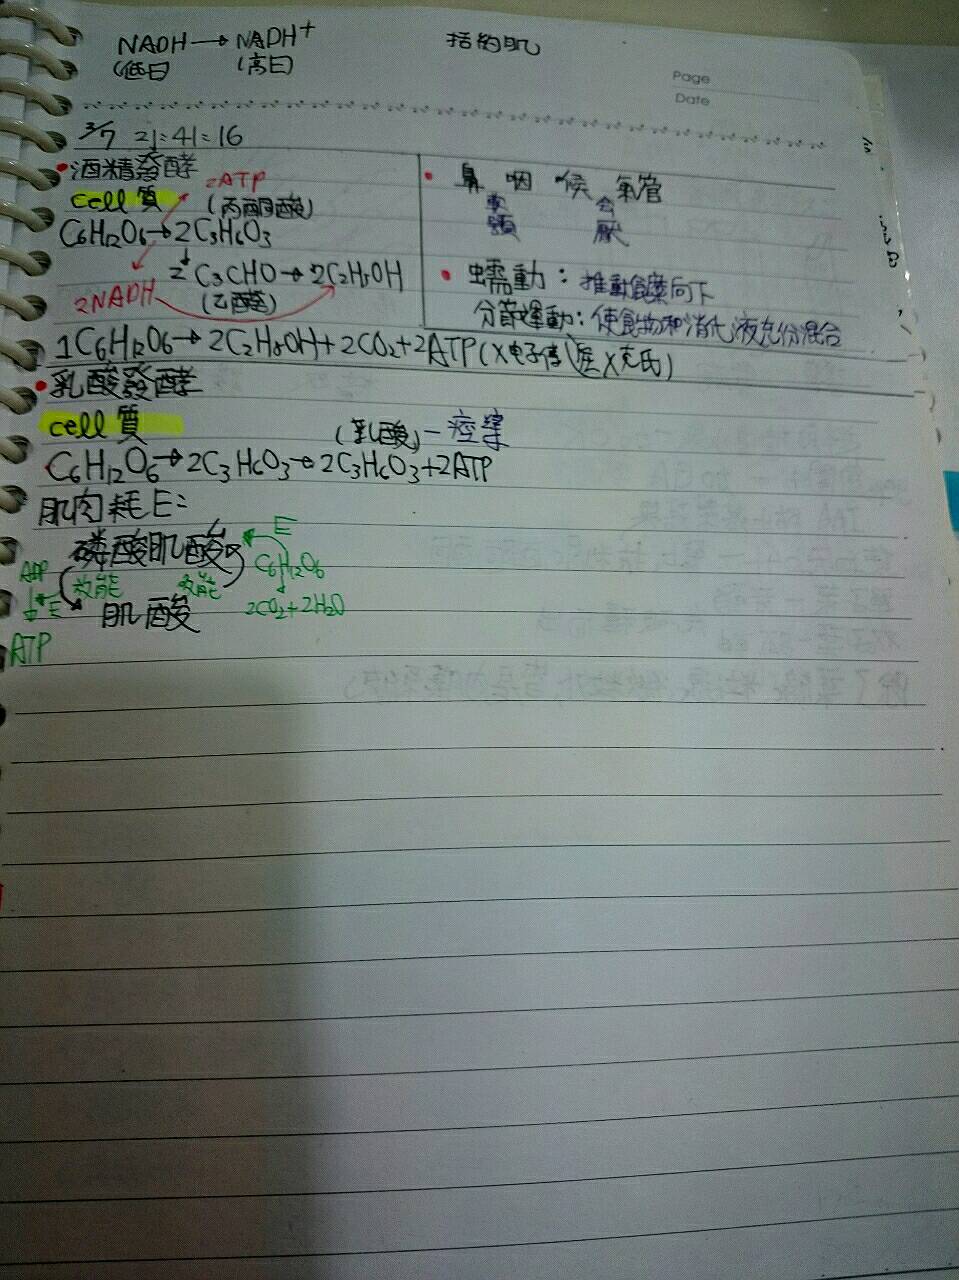 NADH→NADH+
括約肌
(低日)
(高日)
Page
Date
3/7 21:41:16
•酒精發酵
2ATP
cell質
(丙酮酸)
C6H12O6→2C3H6O3
2C3CHO→2C2H5OH
2NADH
(乙醛)
• 鼻 咽 喉 氣管
軟 会
顎 厭
• 蠕動:推動食糜向下
分節運動:使食物和消化液充份混合
1C6H12O6→2C2H5OH+2CO2+2ATP(X电子傳 X克氏)
•乳酸發酵
cell質
(乳酸)-痙攣
C6H12O6→2C3H6O3→2C3H6O3+2ATP
肌肉耗E:
磷酸肌酸
E
C6H12O6
ADP
放能
E
2CO2+2H2O
肌酸
ATP